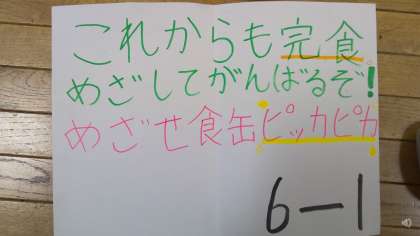 これからも完食
めざしてがんばるぞ!
めざせ食缶ピッカピカ
6-1